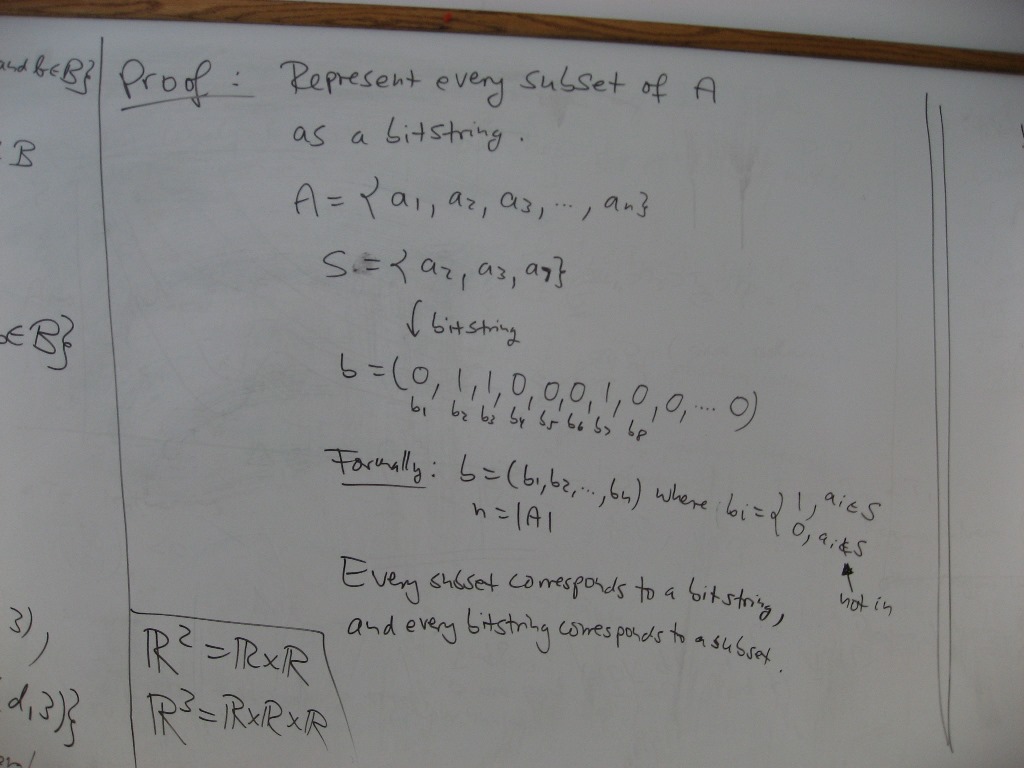 and b∈B}
B
∈B}
3),
d,3)}
Proof: Represent every subset of A
as a bitstring.
A = {a1, a2, a3, ..., an}
S = {a2, a3, a7}
↓ bitstring
b = (0, 1, 1, 0, 0, 0, 1, 0, 0, .... 0)
b1 b2 b3 b4 b5 b6 b7 b8
Formally: b = (b1, b2, ..., bn) where bi = { 1, ai∈S
n = |A| 0, ai∉S
not in
Every subset corresponds to a bitstring,
and every bitstring corresponds to a subset.
ℝ² = ℝ×ℝ
ℝ³ = ℝ×ℝ×ℝ